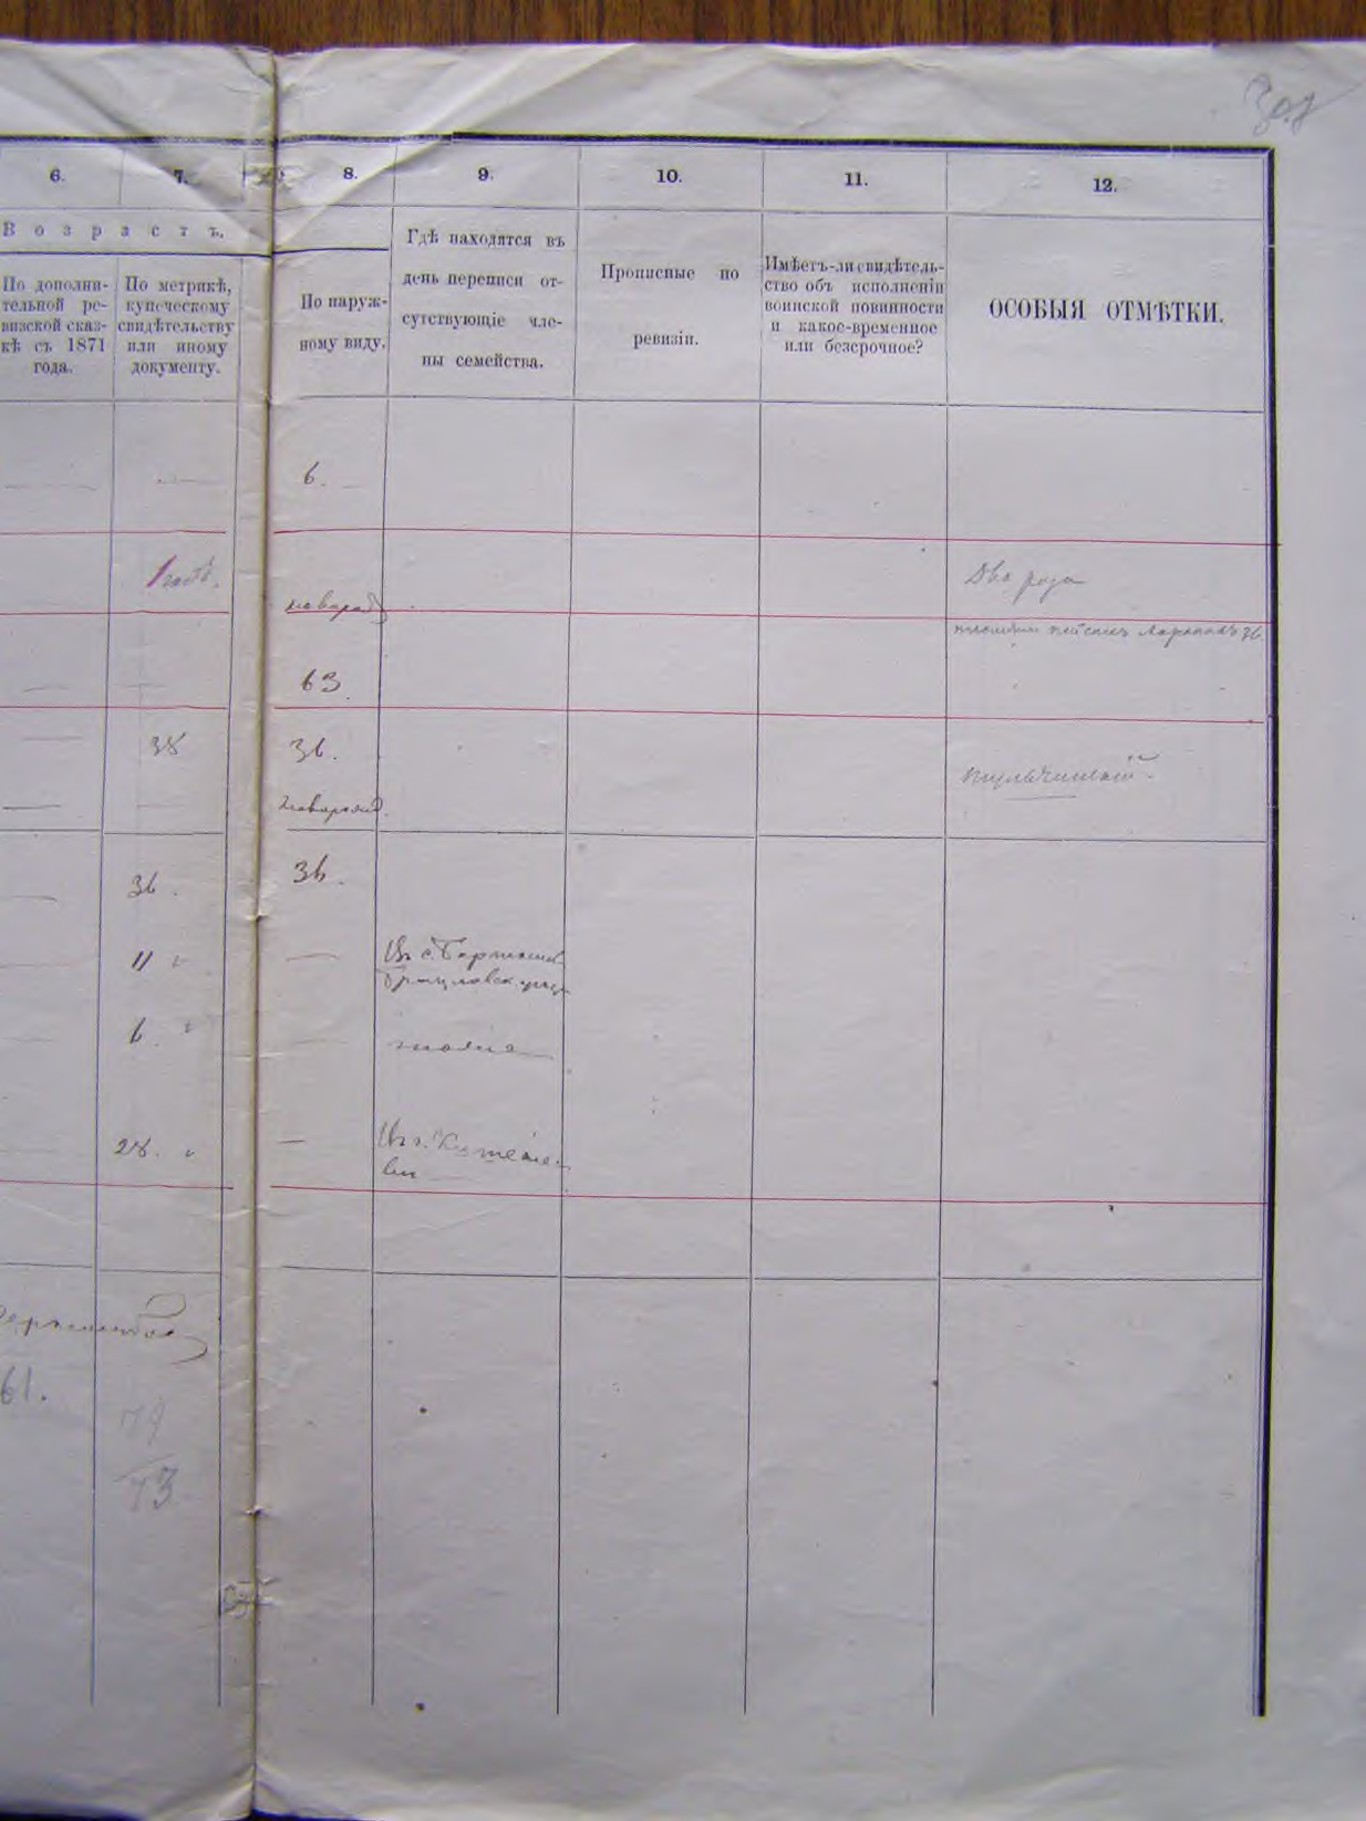 6.
7.
8.
9.
10.
11.
12.
Возрастъ.
По дополни-
тельной ре-
визской сказ-
кѣ съ 1871
года.
По метрикѣ,
купеческому
свидѣтельству
или иному
документу.
По наруж-
ному виду.
Гдѣ находятся въ
день переписи от-
сутствующіе чле-
ны семейства.
Прописные по
ревизіи.
Имѣетъ-ли свидѣтель-
ство объ исполненіи
воинской повинности
и какое-временное
или безсрочное?
ОСОБЫЯ ОТМѢТКИ.
6.
1
Два раза
63
38
36.
Тульчинскій
36.
36.
11 "
Въ с.
Брацлавск.
6. "
тоже
28. "
61.
79
73